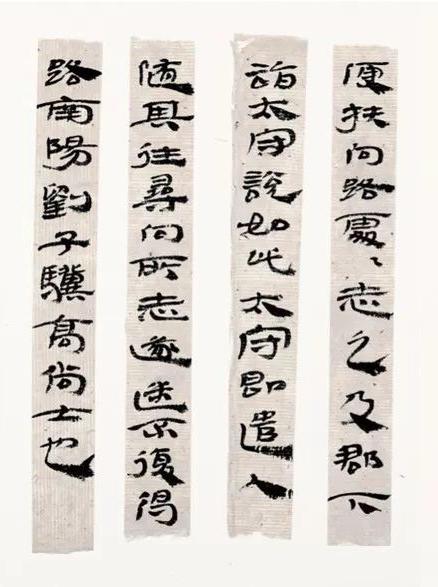 便扶向路處〻志之及郡下
詣太守說如此太守即遣人
随其往尋向所志遂迷不復得
路南陽劉子驥高尚士也